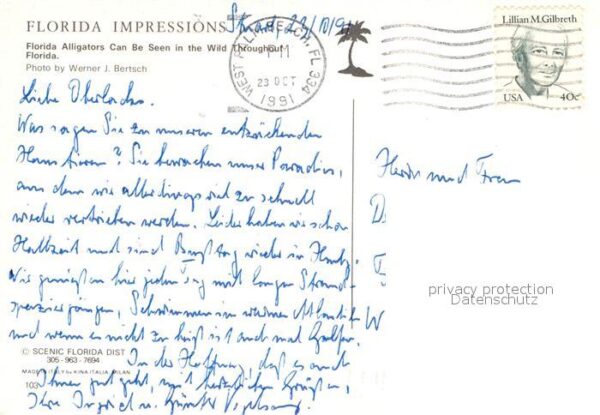 FLORIDA IMPRESSIONS
Florida Alligators Can Be Seen in the Wild Throughout
Florida.
Photo by Werner J. Bertsch
WEST PALM BEACH, FL 334
PM
23 OCT
1991
Lillian M. Gilbreth
USA 40c
Liebe
Was sagen Sie zu unseren entzückenden
Haustieren? Sie bewachen unser Paradies,
aus dem wir allerdings viel zu schnell
wieder vertrieben werden. Leider haben wir schon
Halbzeit und sind wieder in
Wir genießen hier jeden Tag mit langen Strand-
spaziergängen, Schwimmen im warmen Atlantik
und wenn es nicht zu heiß ist auch mal Golfen.
In der Hoffnung, daß es auch
Ihnen gut geht, mit herzlichen Grüßen,
Ihre Ingrid u. Günter
Herrn und Frau
D
W
privacy protection
Datenschutz
© SCENIC FLORIDA DIST
305-963-7694
MADE IN ITALY by KINA ITALIA, MILAN
103